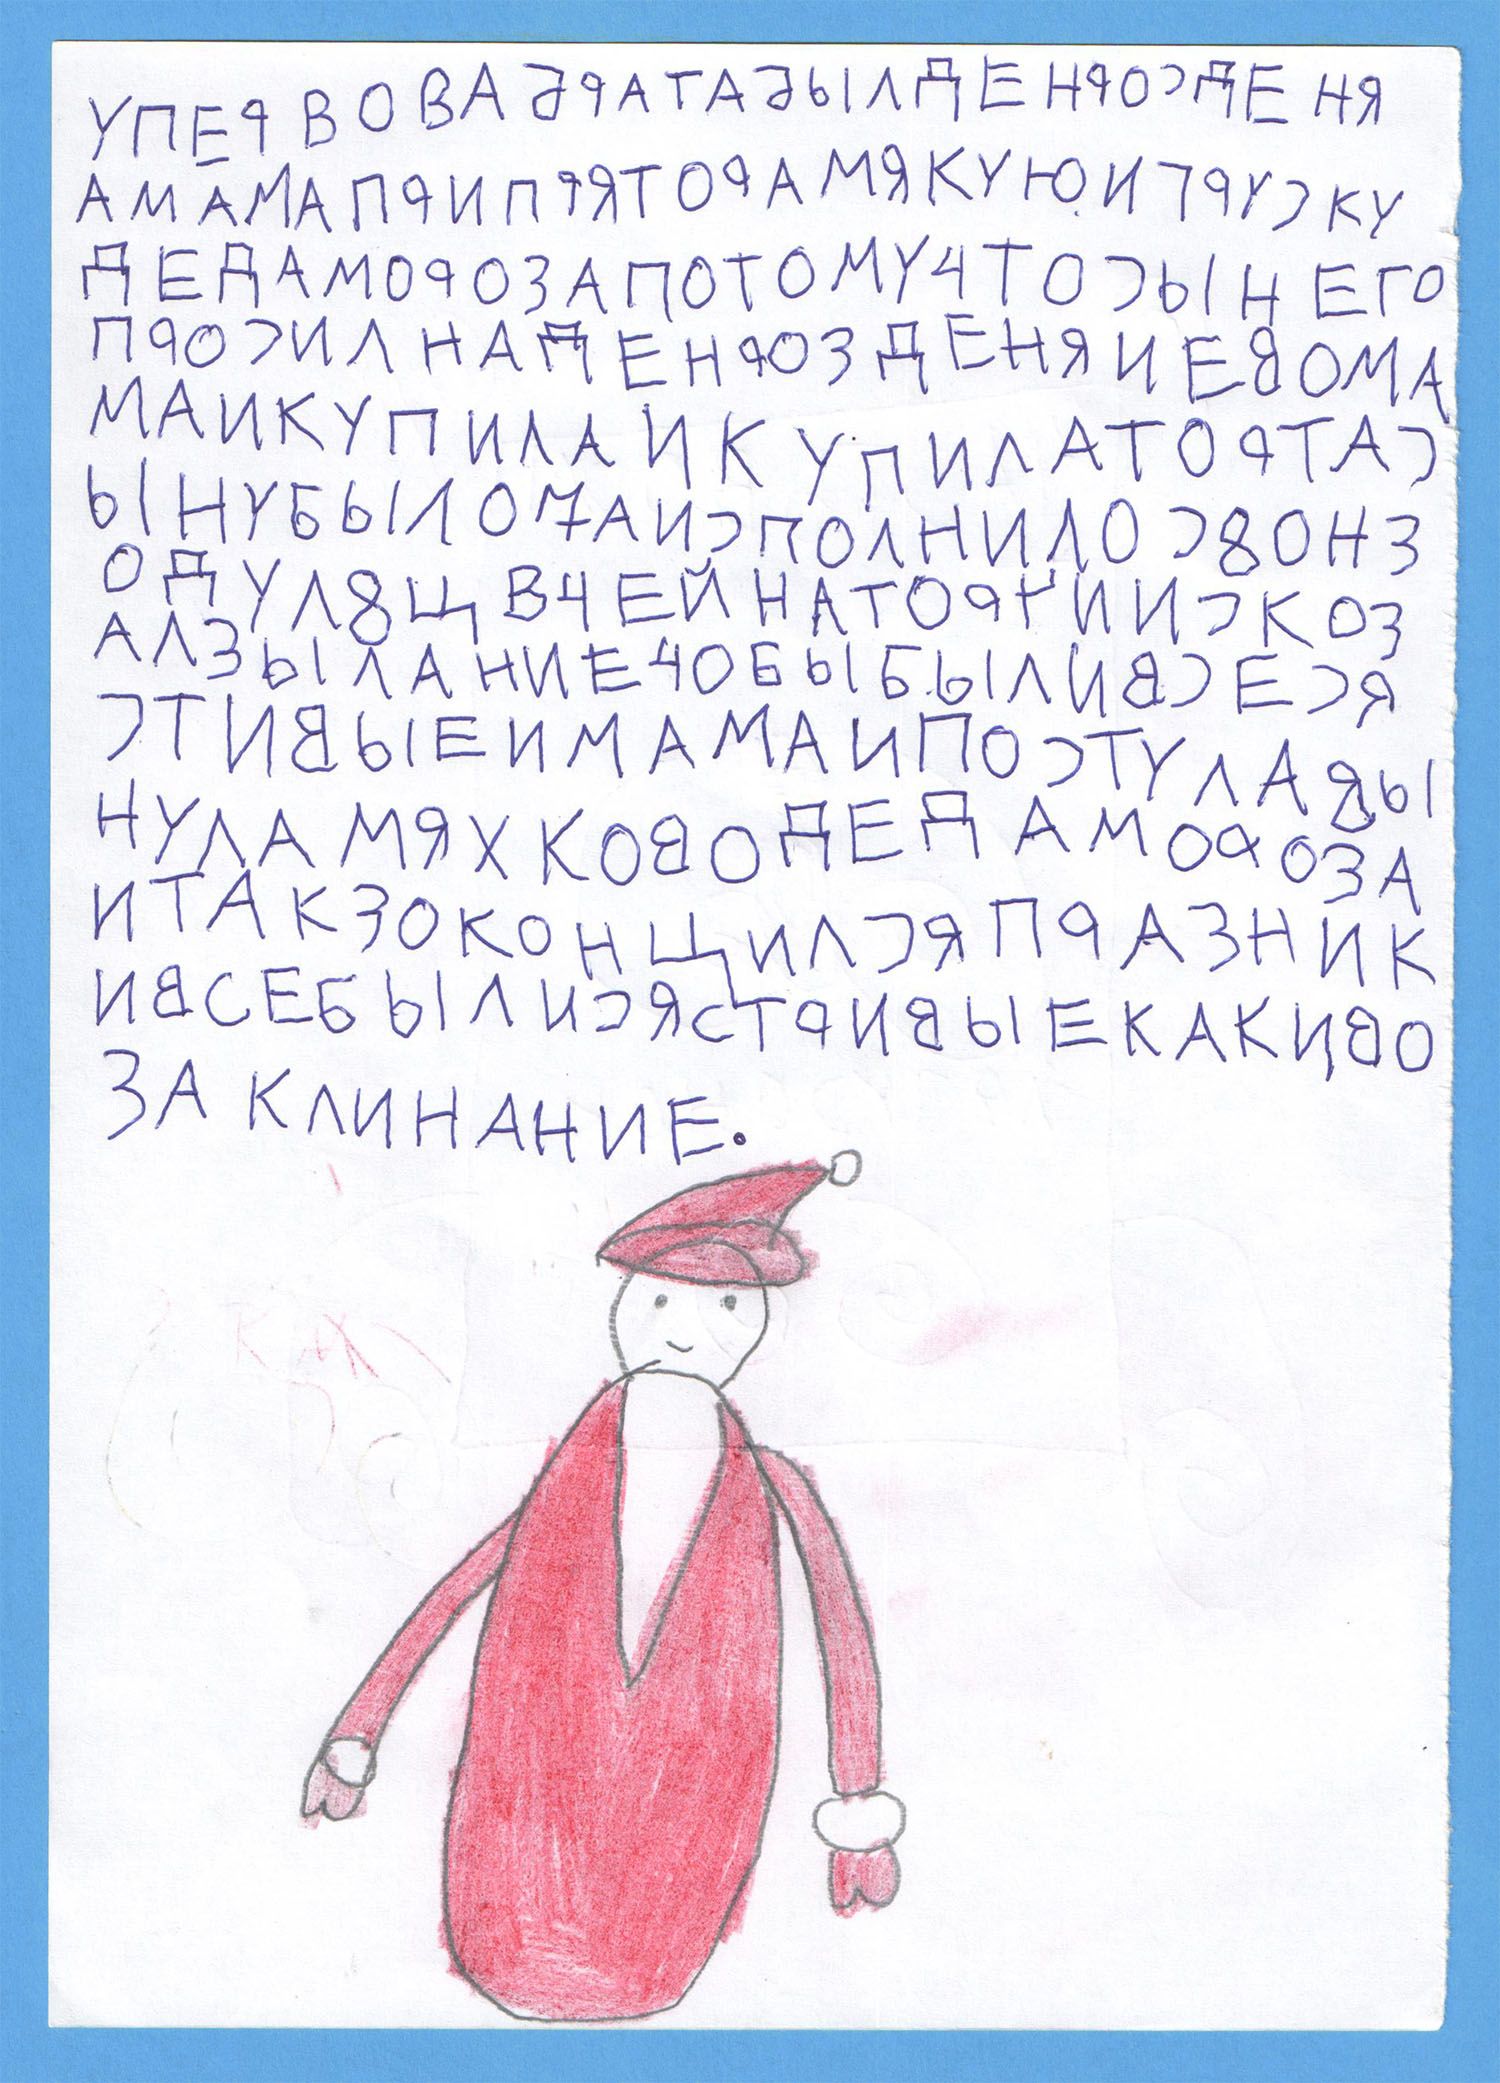 УПЕРВОВАБРАТАБЫЛДЕНРОСДЕНЯ
АМАМАПРИПРЯТОРАМЯКУЮИГРУСКУ
ДЕДАМОРОЗАПОТОМУЧТОСЫНЕГО
ПРОСИЛНАДЕНРОЗДЕНЯИЕВОМА
МАИКУПИЛАИКУПИЛАТОРТАС
ЫНУБЫЛО7АИСПОЛНИЛОСВОНЗ
ОДУЛ8ЩВЧЕЙНАТОРКИИСКОЗ
АЛЗЫЛАНИЕЧОБЫБЫЛИВСЕСЯ
СТИВЫЕИМАМАИПОСТУЛАВЫ
НУЛАМЯХКОВОДЕДАМОРОЗА
ИТАКЗОКОНЩИЛСЯПРАЗНИК
ИВСЕБЫЛИСЯСТРИВЫЕКАКИВО
ЗАКЛИНАНИЕ.